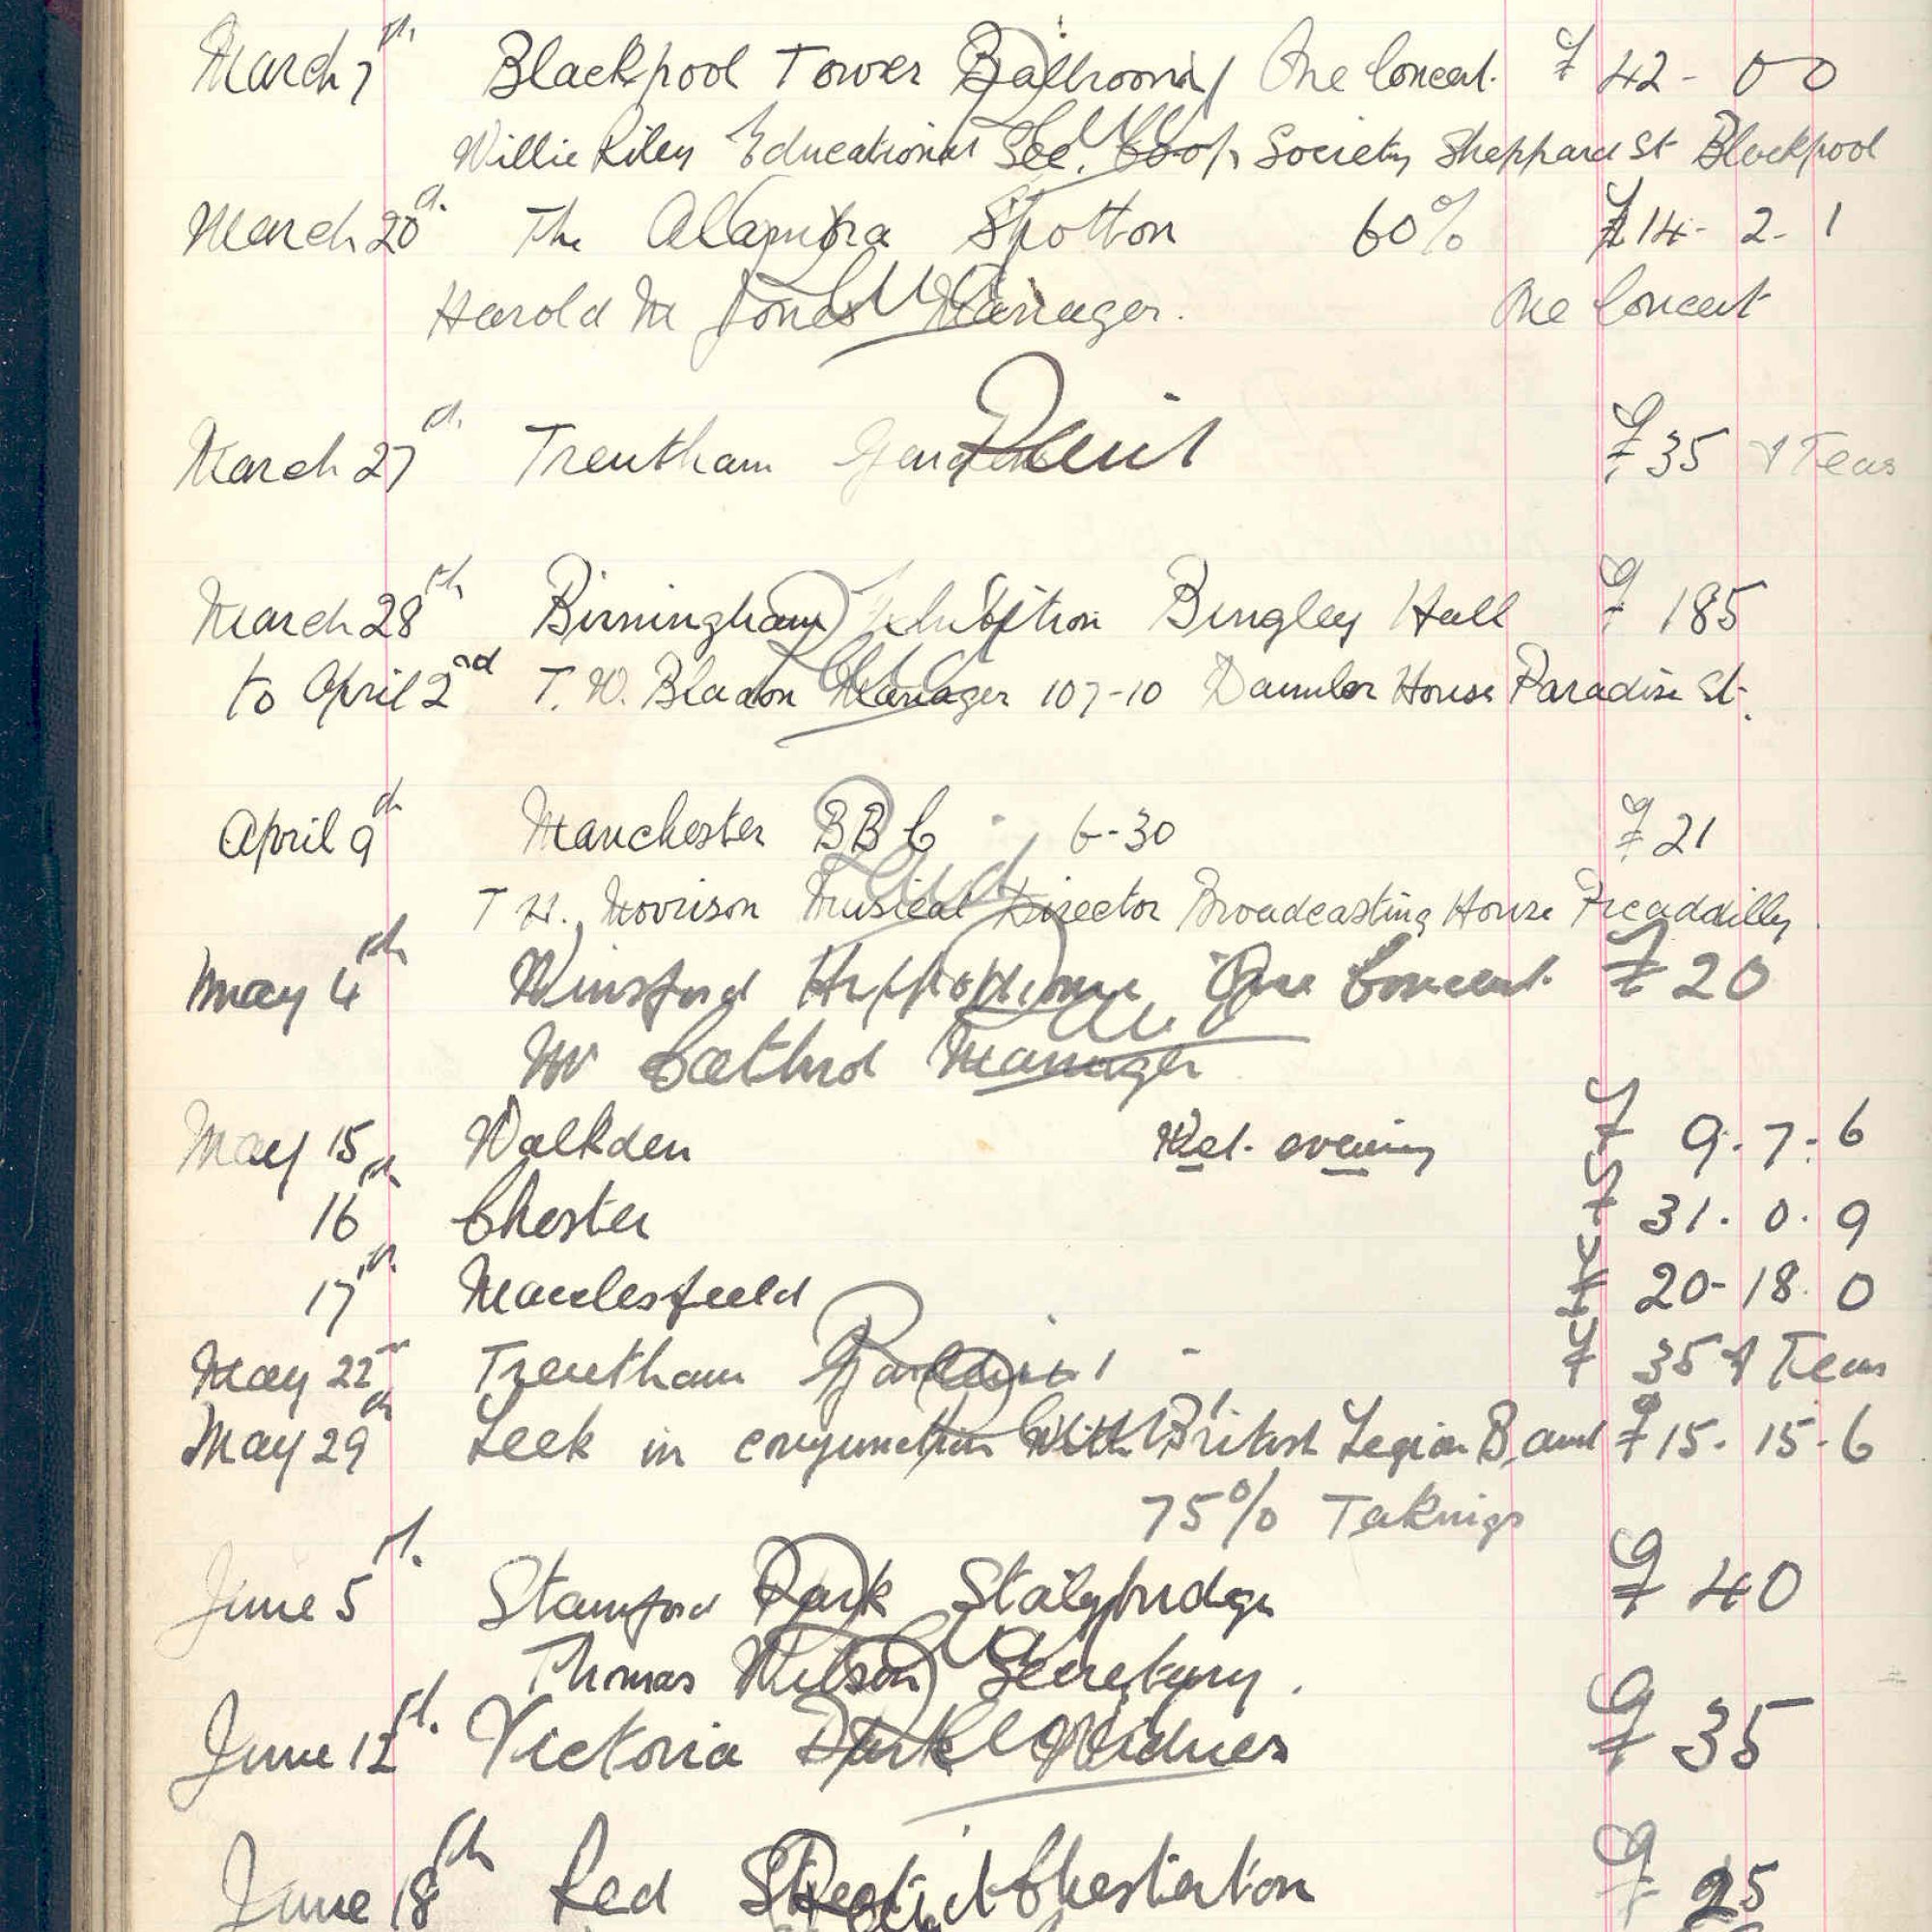 March 7th Blackpool Tower Ballroom One Concert. £ 42 - 0 0
Paid
Willie Riley Educational Sec. Coop Society Sheppard St Blackpool
March 20th The Alambra Shotton 60% £14- 2. 1
Paid
Harold M Jones Manager. One Concert
March 27th Trentham Gardens Paid £35 & Teas
March 28th Birmingham Exhibition Bingley Hall £ 185
Paid
to April 2nd T. W. Bladon Manager 107-10 Daimler House Paradise St.
April 9th Manchester BBC 6-30 £21
Paid
T H. Morrison Musical Director Broadcasting House Piccadilly.
May 4th Winsford Hippodrome One Concert. £20
Paid
Mr Manager
May 15th Walkden Wet. evening £ 9.7.6
16th Chester £ 31.0.9
17th Macclesfield £ 20-18.0
May 22nd Trentham Gardens Paid - £ 35 & Teas
May 29th Leek in conjunction with British Legion Band £15.15.6
75% Takings
June 5th. Stamford Park Stalybridge £ 40
Paid
Thomas Wilson Secretary.
June 12th. Victoria Park Widnes £ 35
Paid
June 18th Red Street Chesterton £ 25
Paid